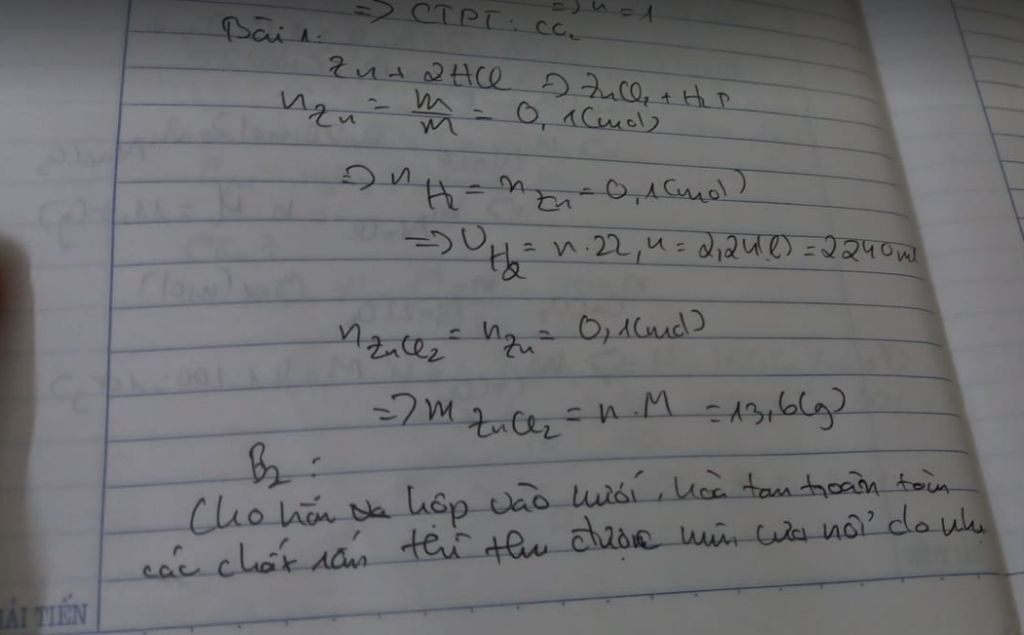 => n = 1
=> CTPT: CCl₂
Bài 1:
Zn + 2HCl => ZnCl₂ + H₂↑
n Zn = m/M = 0,1(mol)
=> n H₂ = n Zn = 0,1(mol)
=> V H₂ = n.22,4 = 2,24(l) = 2240ml
n ZnCl₂ = n Zn = 0,1(mol)
=> m ZnCl₂ = n.M = 13,6(g)
B2:
Cho hỗn hợp vào hoà tan hoàn toàn
các chất rắn thì thu được của nổi do
ẢI TIẾN